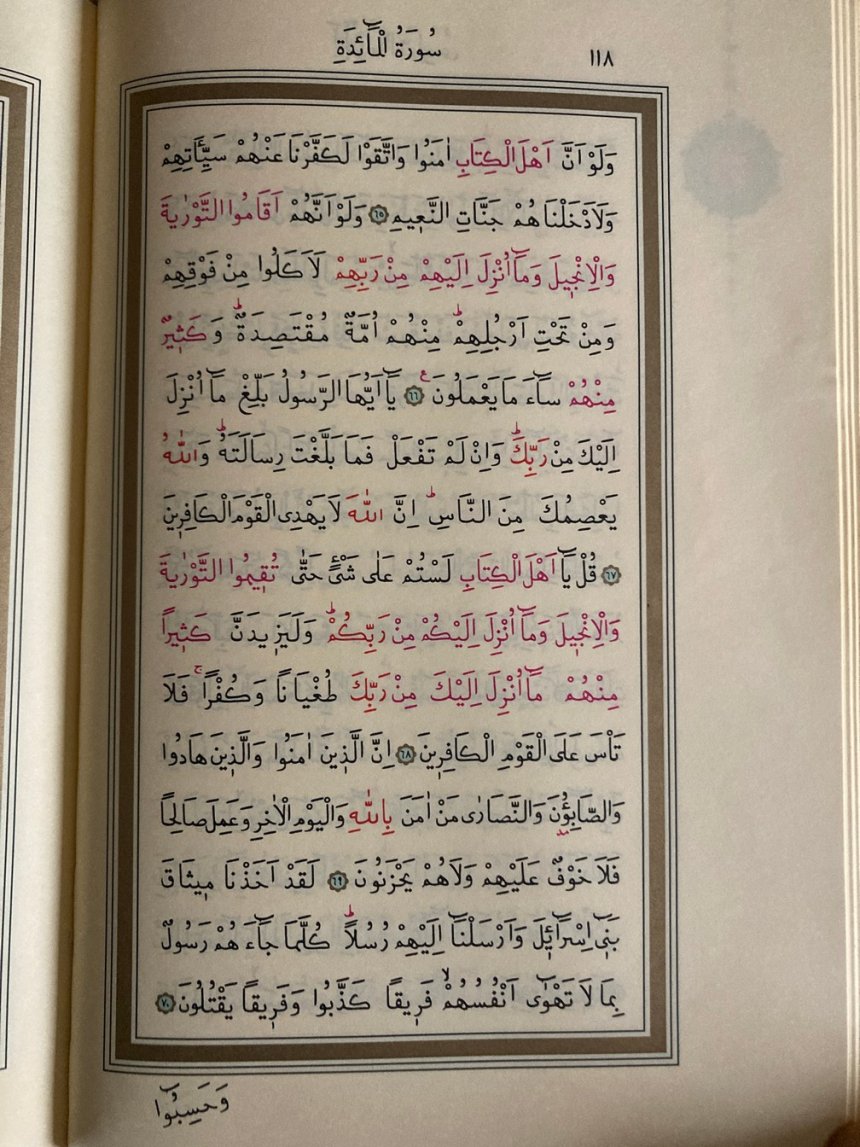 سُورَةُ الْمَٓائِدَةِ
١١٨
وَلَوْ اَنَّ اَهْلَ الْكِتَابِ اٰمَنُوا وَاتَّقَوْا لَكَفَّرْنَا عَنْهُمْ سَيِّـَٔاتِهِمْ
وَلَاَدْخَلْنَاهُمْ جَنَّاتِ النَّعٖيمِ ﴿٦٥﴾ وَلَوْ اَنَّهُمْ اَقَامُوا التَّوْرٰيةَ
وَالْاِنْجٖيلَ وَمَٓا اُنْزِلَ اِلَيْهِمْ مِنْ رَبِّهِمْ لَاَكَلُوا مِنْ فَوْقِهِمْ
وَمِنْ تَحْتِ اَرْجُلِهِمْؕ مِنْهُمْ اُمَّةٌ مُقْتَصِدَةٌؕ وَكَثٖيرٌ
مِنْهُمْ سَٓاءَ مَا يَعْمَلُونَ ࣖ ﴿٦٦﴾ يَٓا اَيُّهَا الرَّسُولُ بَلِّغْ مَٓا اُنْزِلَ
اِلَيْكَ مِنْ رَبِّكَؕ وَاِنْ لَمْ تَفْعَلْ فَمَا بَلَّغْتَ رِسَالَتَهُؕ وَاللّٰهُ
يَعْصِمُكَ مِنَ النَّاسِؕ اِنَّ اللّٰهَ لَا يَهْدِى الْقَوْمَ الْكَافِرٖينَ
﴿٦٧﴾ قُلْ يَٓا اَهْلَ الْكِتَابِ لَسْتُمْ عَلٰى شَیْءٍ حَتّٰى تُقٖيمُوا التَّوْرٰيةَ
وَالْاِنْجٖيلَ وَمَٓا اُنْزِلَ اِلَيْكُمْ مِنْ رَبِّكُمْؕ وَلَيَزٖيدَنَّ كَثٖيراً
مِنْهُمْ مَٓا اُنْزِلَ اِلَيْكَ مِنْ رَبِّكَ طُغْيَاناً وَكُفْراًۚ فَلَا
تَأْسَ عَلَى الْقَوْمِ الْكَافِرٖينَ ﴿٦٨﴾ اِنَّ الَّذٖينَ اٰمَنُوا وَالَّذٖينَ هَادُوا
وَالصَّابِؤُ۫نَ وَالنَّصَارٰى مَنْ اٰمَنَ بِاللّٰهِ وَالْيَوْمِ الْاٰخِرِ وَعَمِلَ صَالِحاً
فَلَا خَوْفٌ عَلَيْهِمْ وَلَا هُمْ يَحْزَنُونَ ﴿٦٩﴾ لَقَدْ اَخَذْنَا مٖيثَاقَ
بَنٖٓى اِسْرَٓائٖلَ وَاَرْسَلْنَٓا اِلَيْهِمْ رُسُلاًؕ كُلَّمَا جَٓاءَهُمْ رَسُولٌ
بِمَا لَا تَهْوٰٓى اَنْفُسُهُمْۙ فَرٖيقاً كَذَّبُوا وَفَرٖيقاً يَقْتُلُونَ ﴿٧٠﴾
وَحَسِبُٓوا